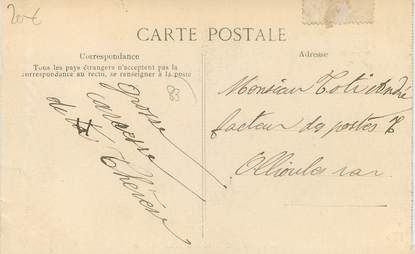 20€
CARTE POSTALE
Correspondance
Tous les pays étrangers n'acceptent pas la
correspondance au recto, se renseigner à la poste
Adresse
83
Grosse
caresse
de ta Thérèse
Monsieur Toti André
facteur des postes
Ollioules var